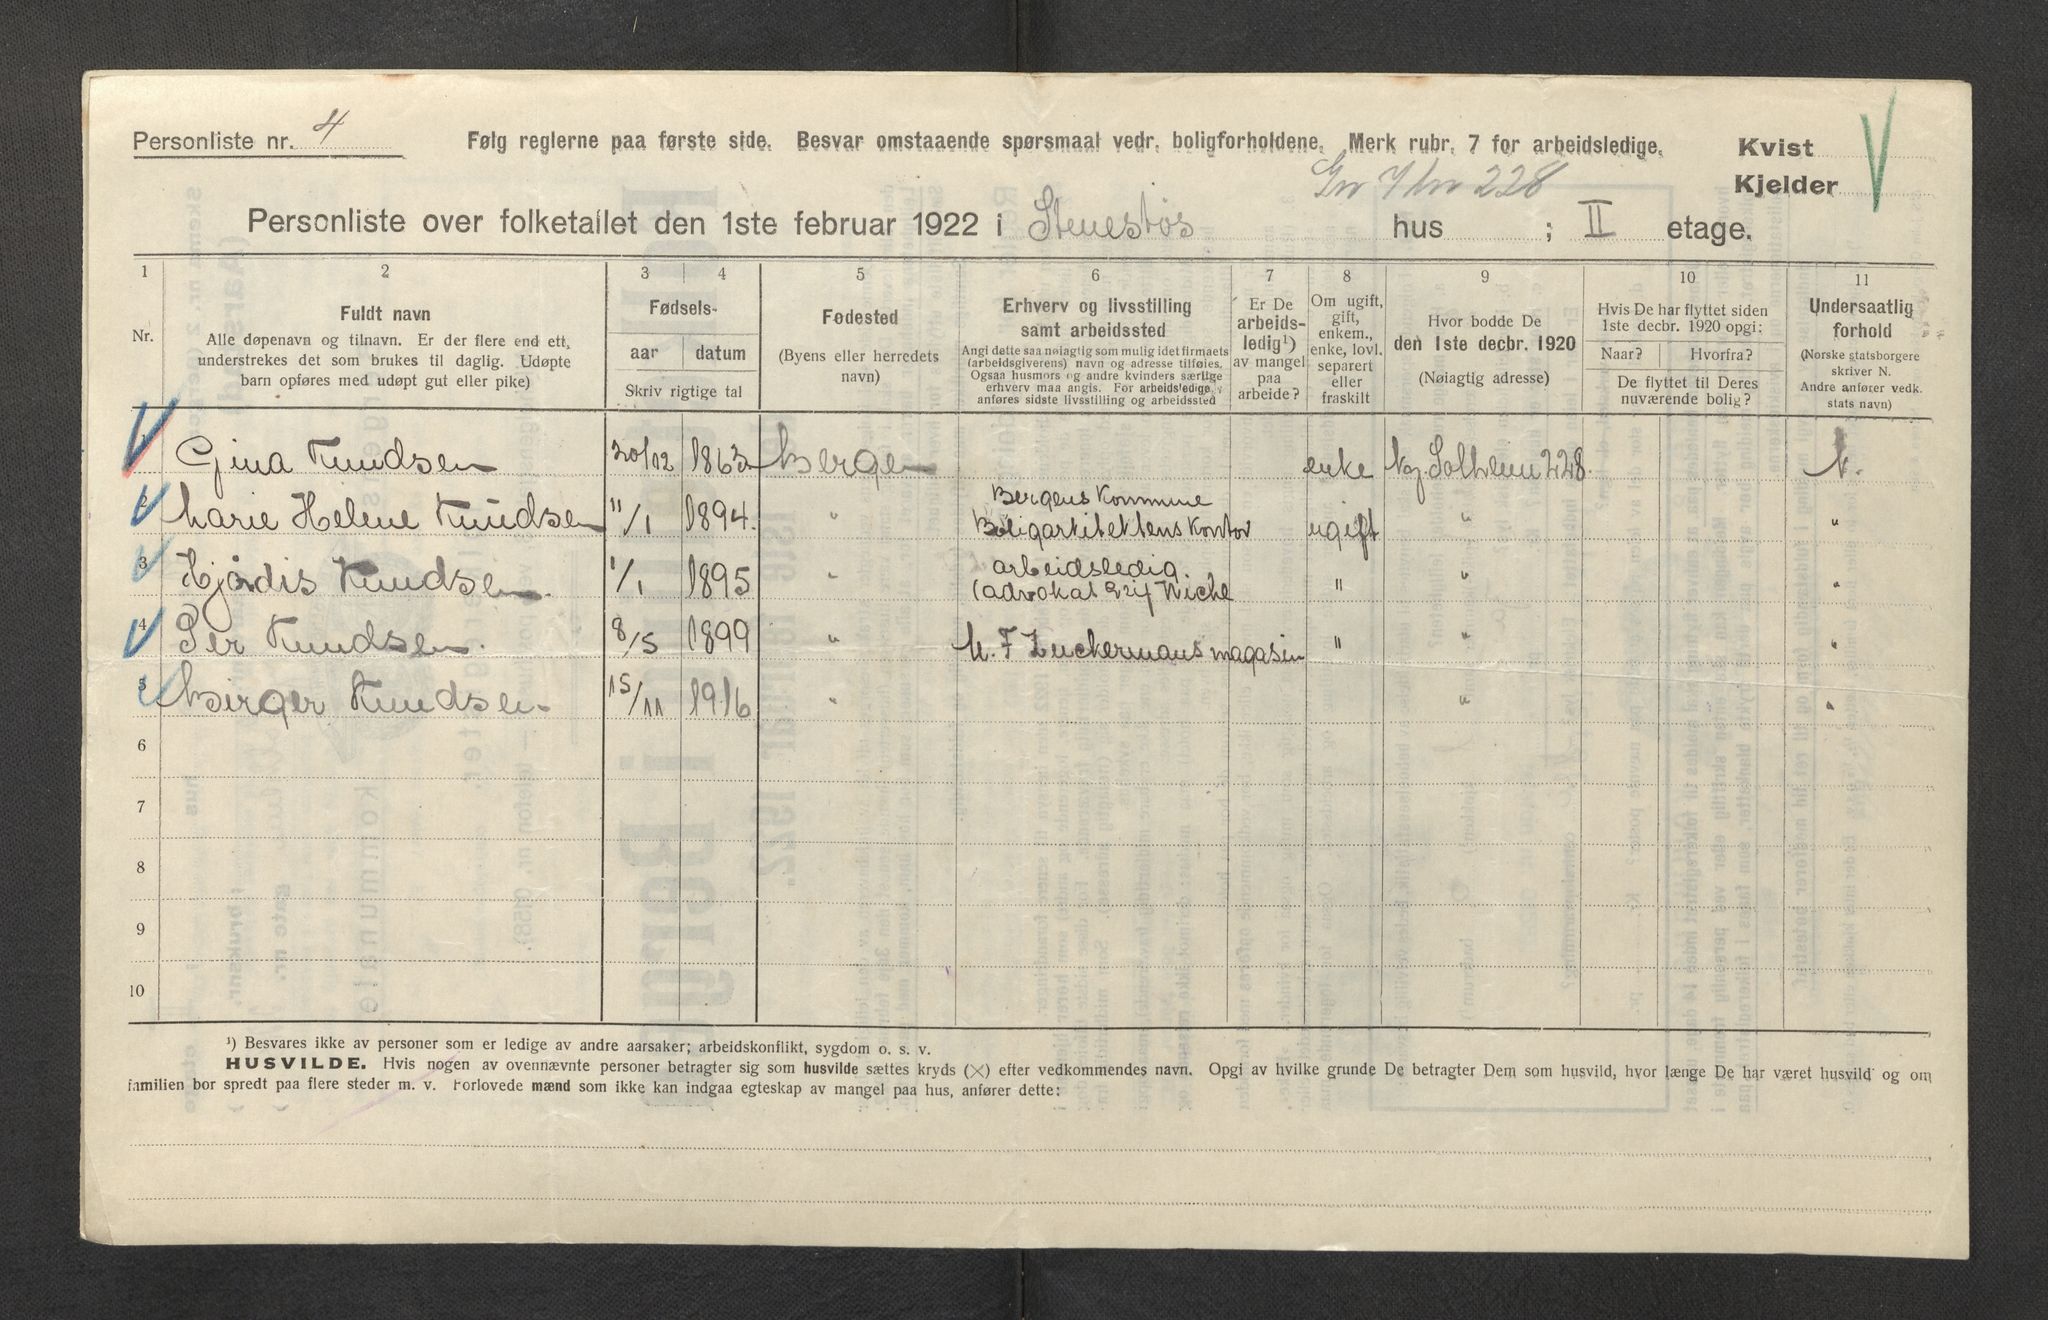 Personliste nr. 4
Følg reglerne paa første side. Besvar omstaaende spørsmaal vedr. boligforholdene. Merk rubr. 7 for arbeidsledige.
Kvist
Kjelder
Gr 7 br 228
Personliste over folketallet den 1ste februar 1922 i Stenestøs hus ; II etage.
1 2 3 4 5 6 7 8 9 10 11
Nr.
Fuldt navn
Alle døpenavn og tilnavn. Er der flere end ett,
understrekes det som brukes til daglig. Udøpte
barn opføres med udøpt gut eller pike)
Fødsels-
aar datum
Skriv rigtige tal
Fødested
(Byens eller herredets
navn)
Erhverv og livsstilling
samt arbeidssted
Angi dette saa nøiagtig som mulig idet firmaets
(arbeidsgiverens) navn og adresse tilføies.
Ogsaa husmors og andre kvinders særlige
erhverv maa angis. For arbeidsledige
anføres sidste livsstilling og arbeidssted
Er De
arbeids-
ledig¹)
av mangel
paa
arbeide?
Om ugift,
gift,
enkem.,
enke, lovl.
separert
eller
fraskilt
Hvor bodde De
den 1ste decbr. 1920
(Nøiagtig adresse)
Hvis De har flyttet siden
1ste decbr. 1920 opgi:
Naar? Hvorfra?
De flyttet til Deres
nuværende bolig?
Undersaatlig
forhold
(Norske statsborgere
skriver N.
Andre anfører vedk.
stats navn)
1 Gina Knudsen 30/12 1863 Bergen enke Ny. Solheim 228. N.
2 Marie Helene Knudsen 11/1 1894. " Bergens Kommune
Boligarkitektens Kontor ugift " "
3 Hjørdis Knudsen 1/1 1895 " arbeidsledig.
(advokat Wiche " " "
4 Per Knudsen. 8/5 1899 " M. F Zuckermans magasin " " "
5 Birger Knudsen 15/11 1916 " " "
6
7
8
9
10
¹) Besvares ikke av personer som er ledige av andre aarsaker; arbeidskonflikt, sygdom o. s. v.
HUSVILDE. Hvis nogen av ovennævnte personer betragter sig som husvilde sættes kryds (×) efter vedkommendes navn. Opgi av hvilke grunde De betragter Dem som husvild, hvor længe De har været husvild og om
familien bor spredt paa flere steder m. v. Forlovede mænd som ikke kan indgaa egteskap av mangel paa hus, anfører dette: